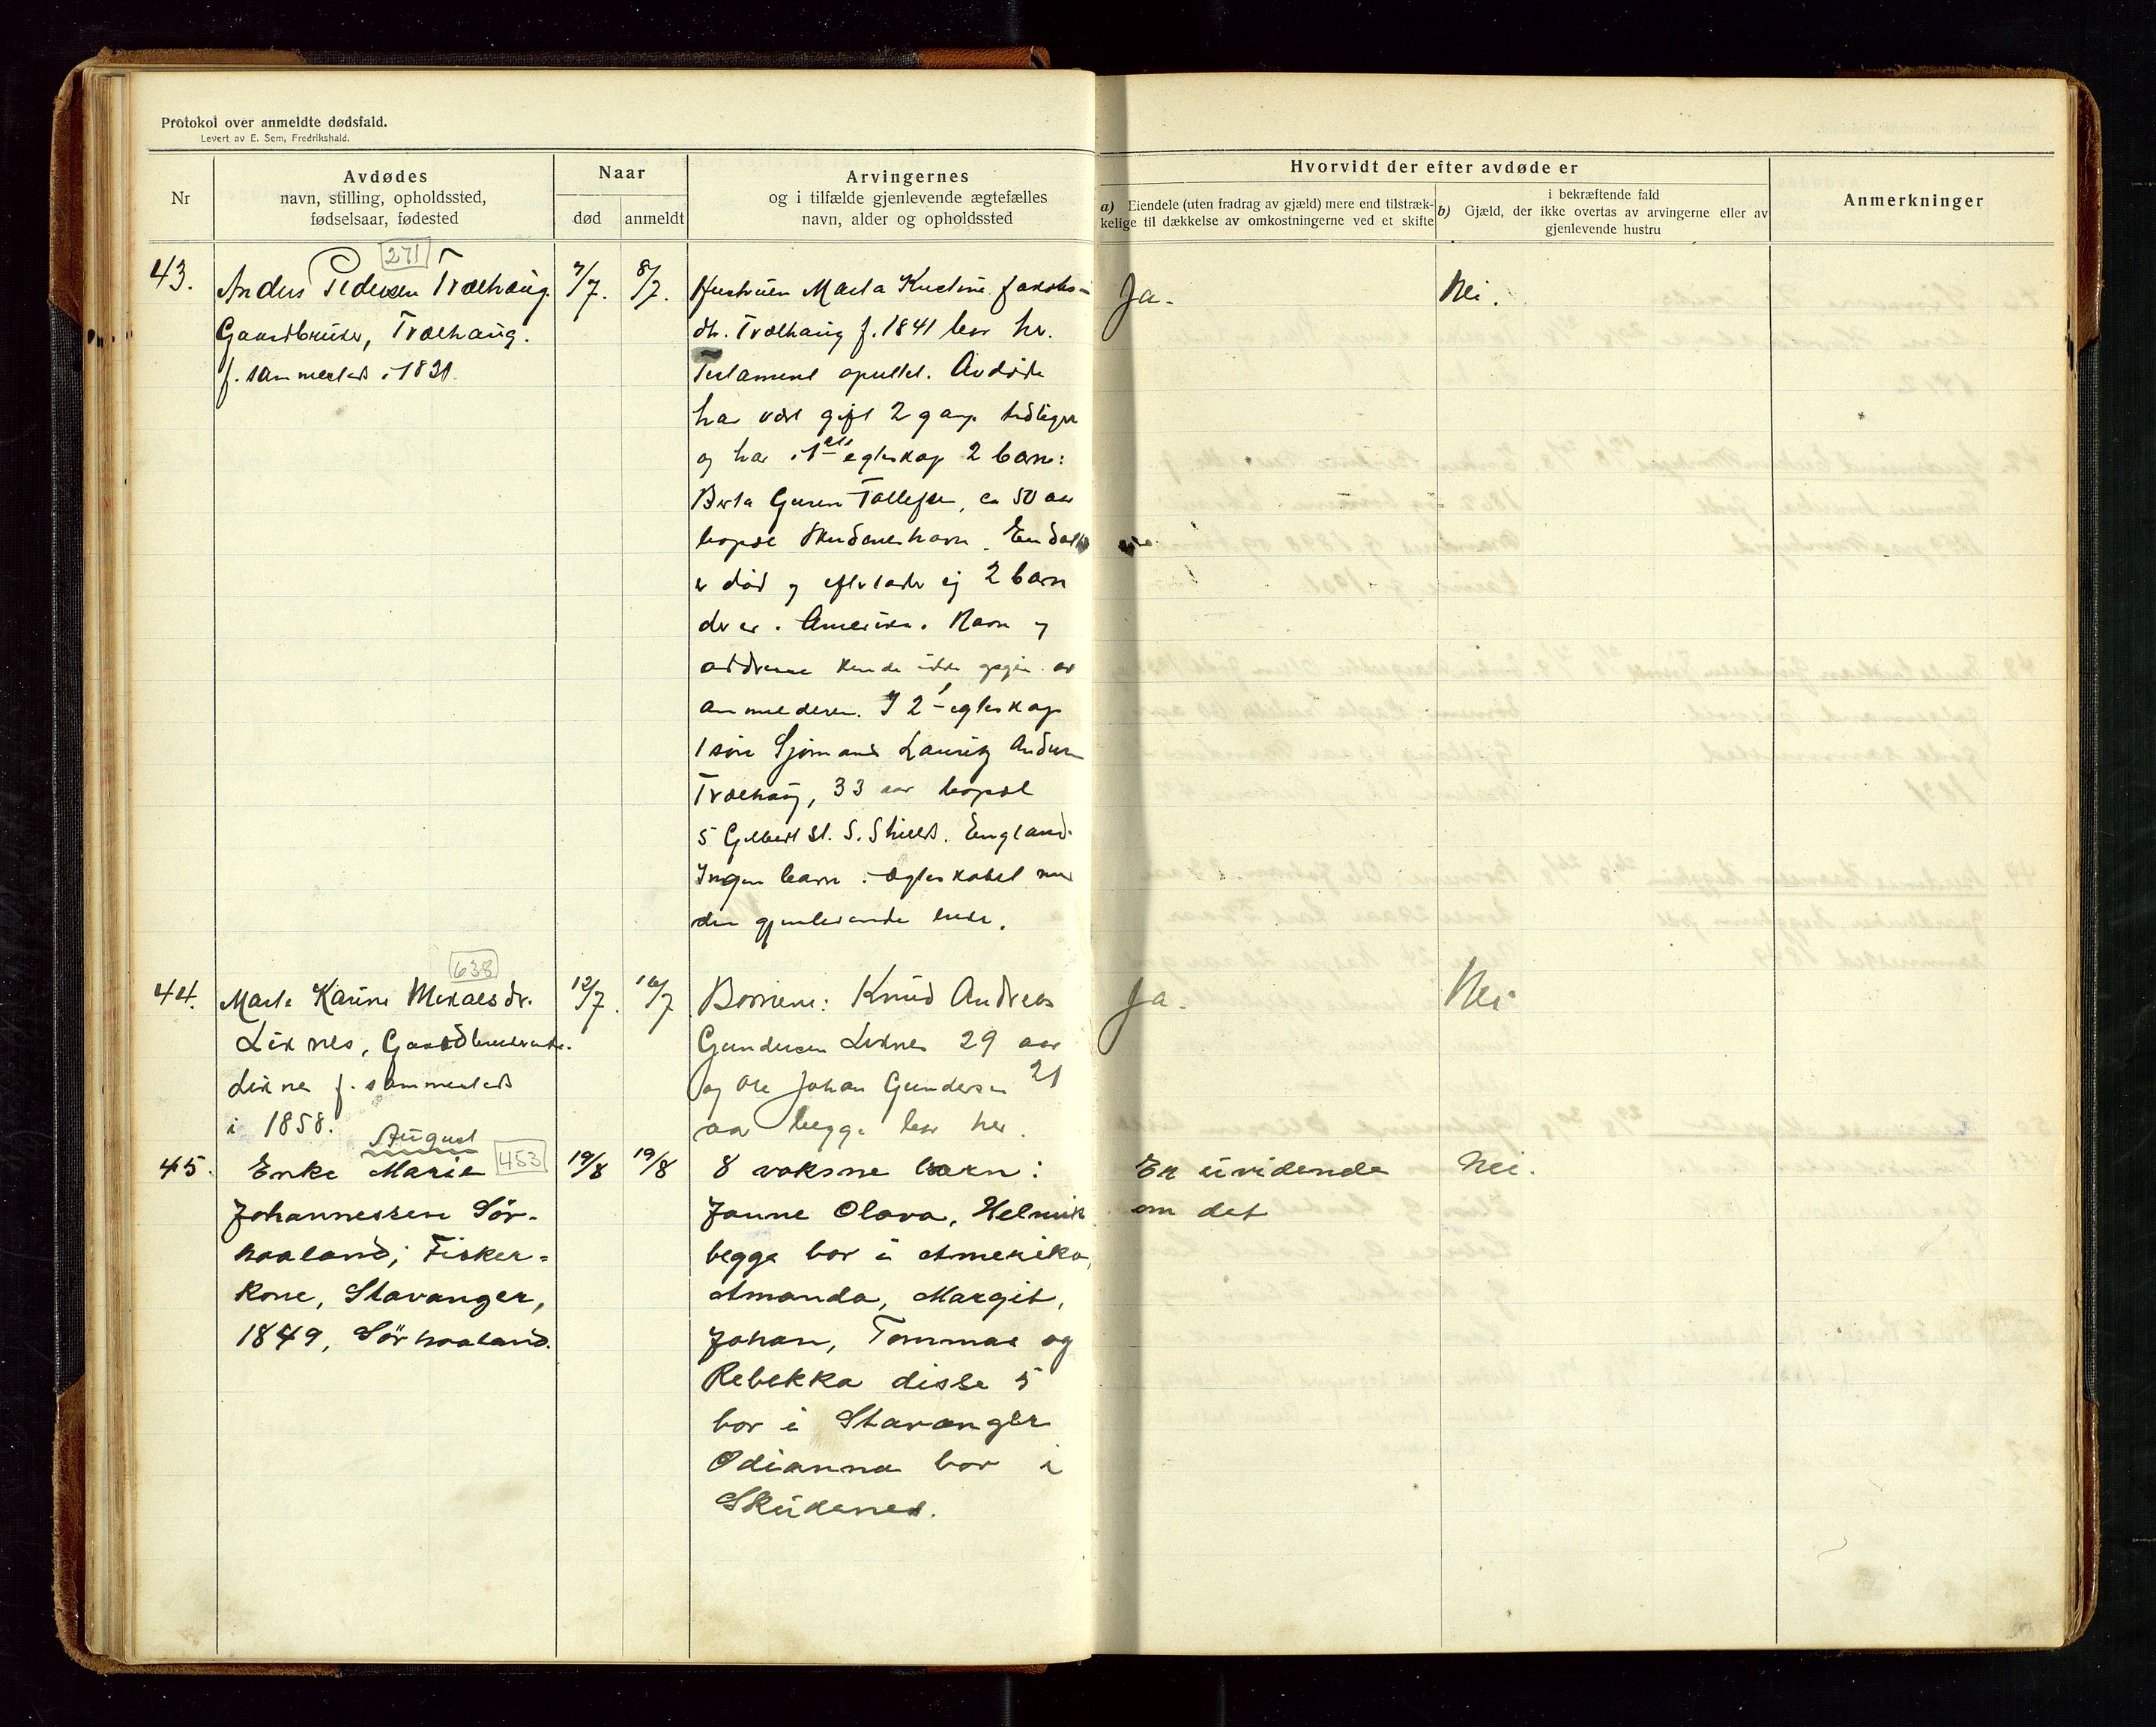 Protokol over anmeldte dødsfald.
Levert av E. Sem, Fredrikshald.
Nr
Avdødes
navn, stilling, opholdssted,
fødselsaar, fødested
Naar
død
anmeldt
Arvingernes
og i tilfælde gjenlevende ægtefælles
navn, alder og opholdssted
Hvorvidt der efter avdøde er
a) Eiendele (uten fradrag av gjæld) mere end tilstræk-
kelige til dækkelse av omkostningerne ved et skifte
b) i bekræftende fald
Gjæld, der ikke overtas av arvingerne eller av
gjenlevende hustru
Anmerkninger
271
43.
Anders Pedersen Trælhaug.
Gaardbruker, Trælhaug.
f. sammesteds i 1831.
7/7.
8/7.
Hustruen Marta Kristine Jakobs-
dtr. Trælhaug f. 1841 bor her.
Testament oprettet. Avdøde
har vært gift 2 gang tidligere
og har i 1ste egteskap 2 barn:
Berta Guren Tollefsen, ca 50 aar
bopæl Skudeneshavn. En datter
er død og efterlader sig 2 barn
der er i Amerika. Navn og
addresse kunde ikke opgis av
anmelderen. I 2 egteskap
1 søn Sjømand Lauritz Andersen
Trælhaug, 33 aar bopæl
5 Gilbert St. S. Shields. England.
Ingen barn i ægteskabet med
den gjenlevende hustru.
Ja.
Nei.
638
44.
Marta Karine Mikaelsdr.
Liknes, Gaardbrukerenke.
Liknes f. sammesteds
i 1858.
12/7.
16/7
Børnene: Knud Andreas
Gundersen Liknes 29 aar
og Ole Johan Gundersen 21
aar begge bor her.
Ja.
Nei.
August
45.
Enke Marie 453
Johannessen Sør-
haaland; Fisker-
kone, Stavanger,
1849, Sørhaaland.
19/8
19/8
8 voksne barn:
Janne Olava, Helmik
begge bor i Amerika,
Amanda, Margit,
Johan, Tommas og
Rebekka disse 5
bor i Stavanger
Odianna bor i
Skudenes.
Er uvidende
om det
Nei.